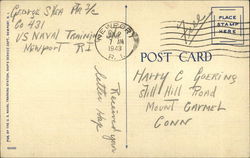 George Shea
Co 431
US Naval Training
Newport RI
NEWPORT
1943
R.I.
Free
PLACE
STAMP
HERE
POST CARD
Harry C Goering
Still Hill Road
Mount Carmel
Conn
Received your
letter